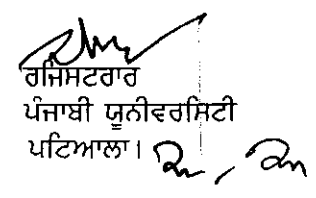 ਰਜਿਸਟਰਾਰ
ਪੰਜਾਬੀ ਯੂਨੀਵਰਸਿਟੀ
ਪਟਿਆਲਾ।